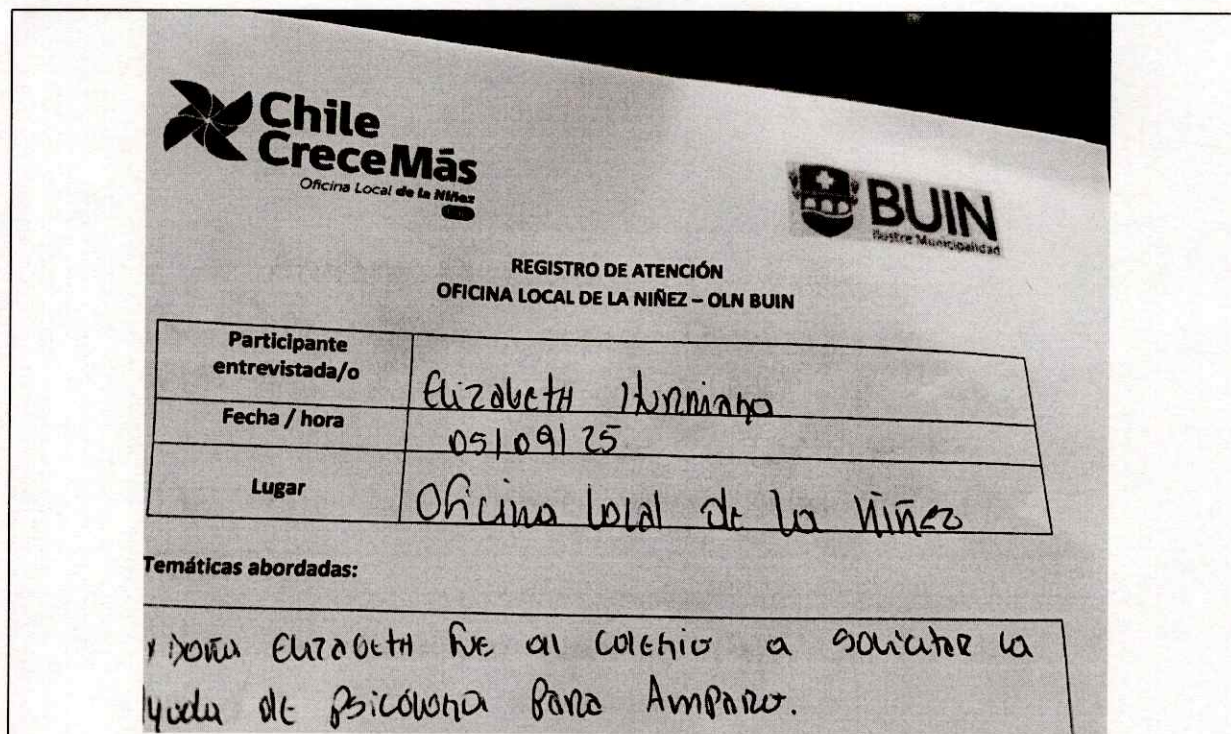 Chile
CreceMás
Oficina Local de la Niñez
BUIN
Ilustre Municipalidad
REGISTRO DE ATENCIÓN
OFICINA LOCAL DE LA NIÑEZ – OLN BUIN
Participante
entrevistada/o
Elizabeth
Fecha / hora
05/09/25
Lugar
Oficina Local de la Niñez
Temáticas abordadas:
Doña Elizabeth fue al colegio a solicitar la
yuda de Psicóloga Para Amparo.